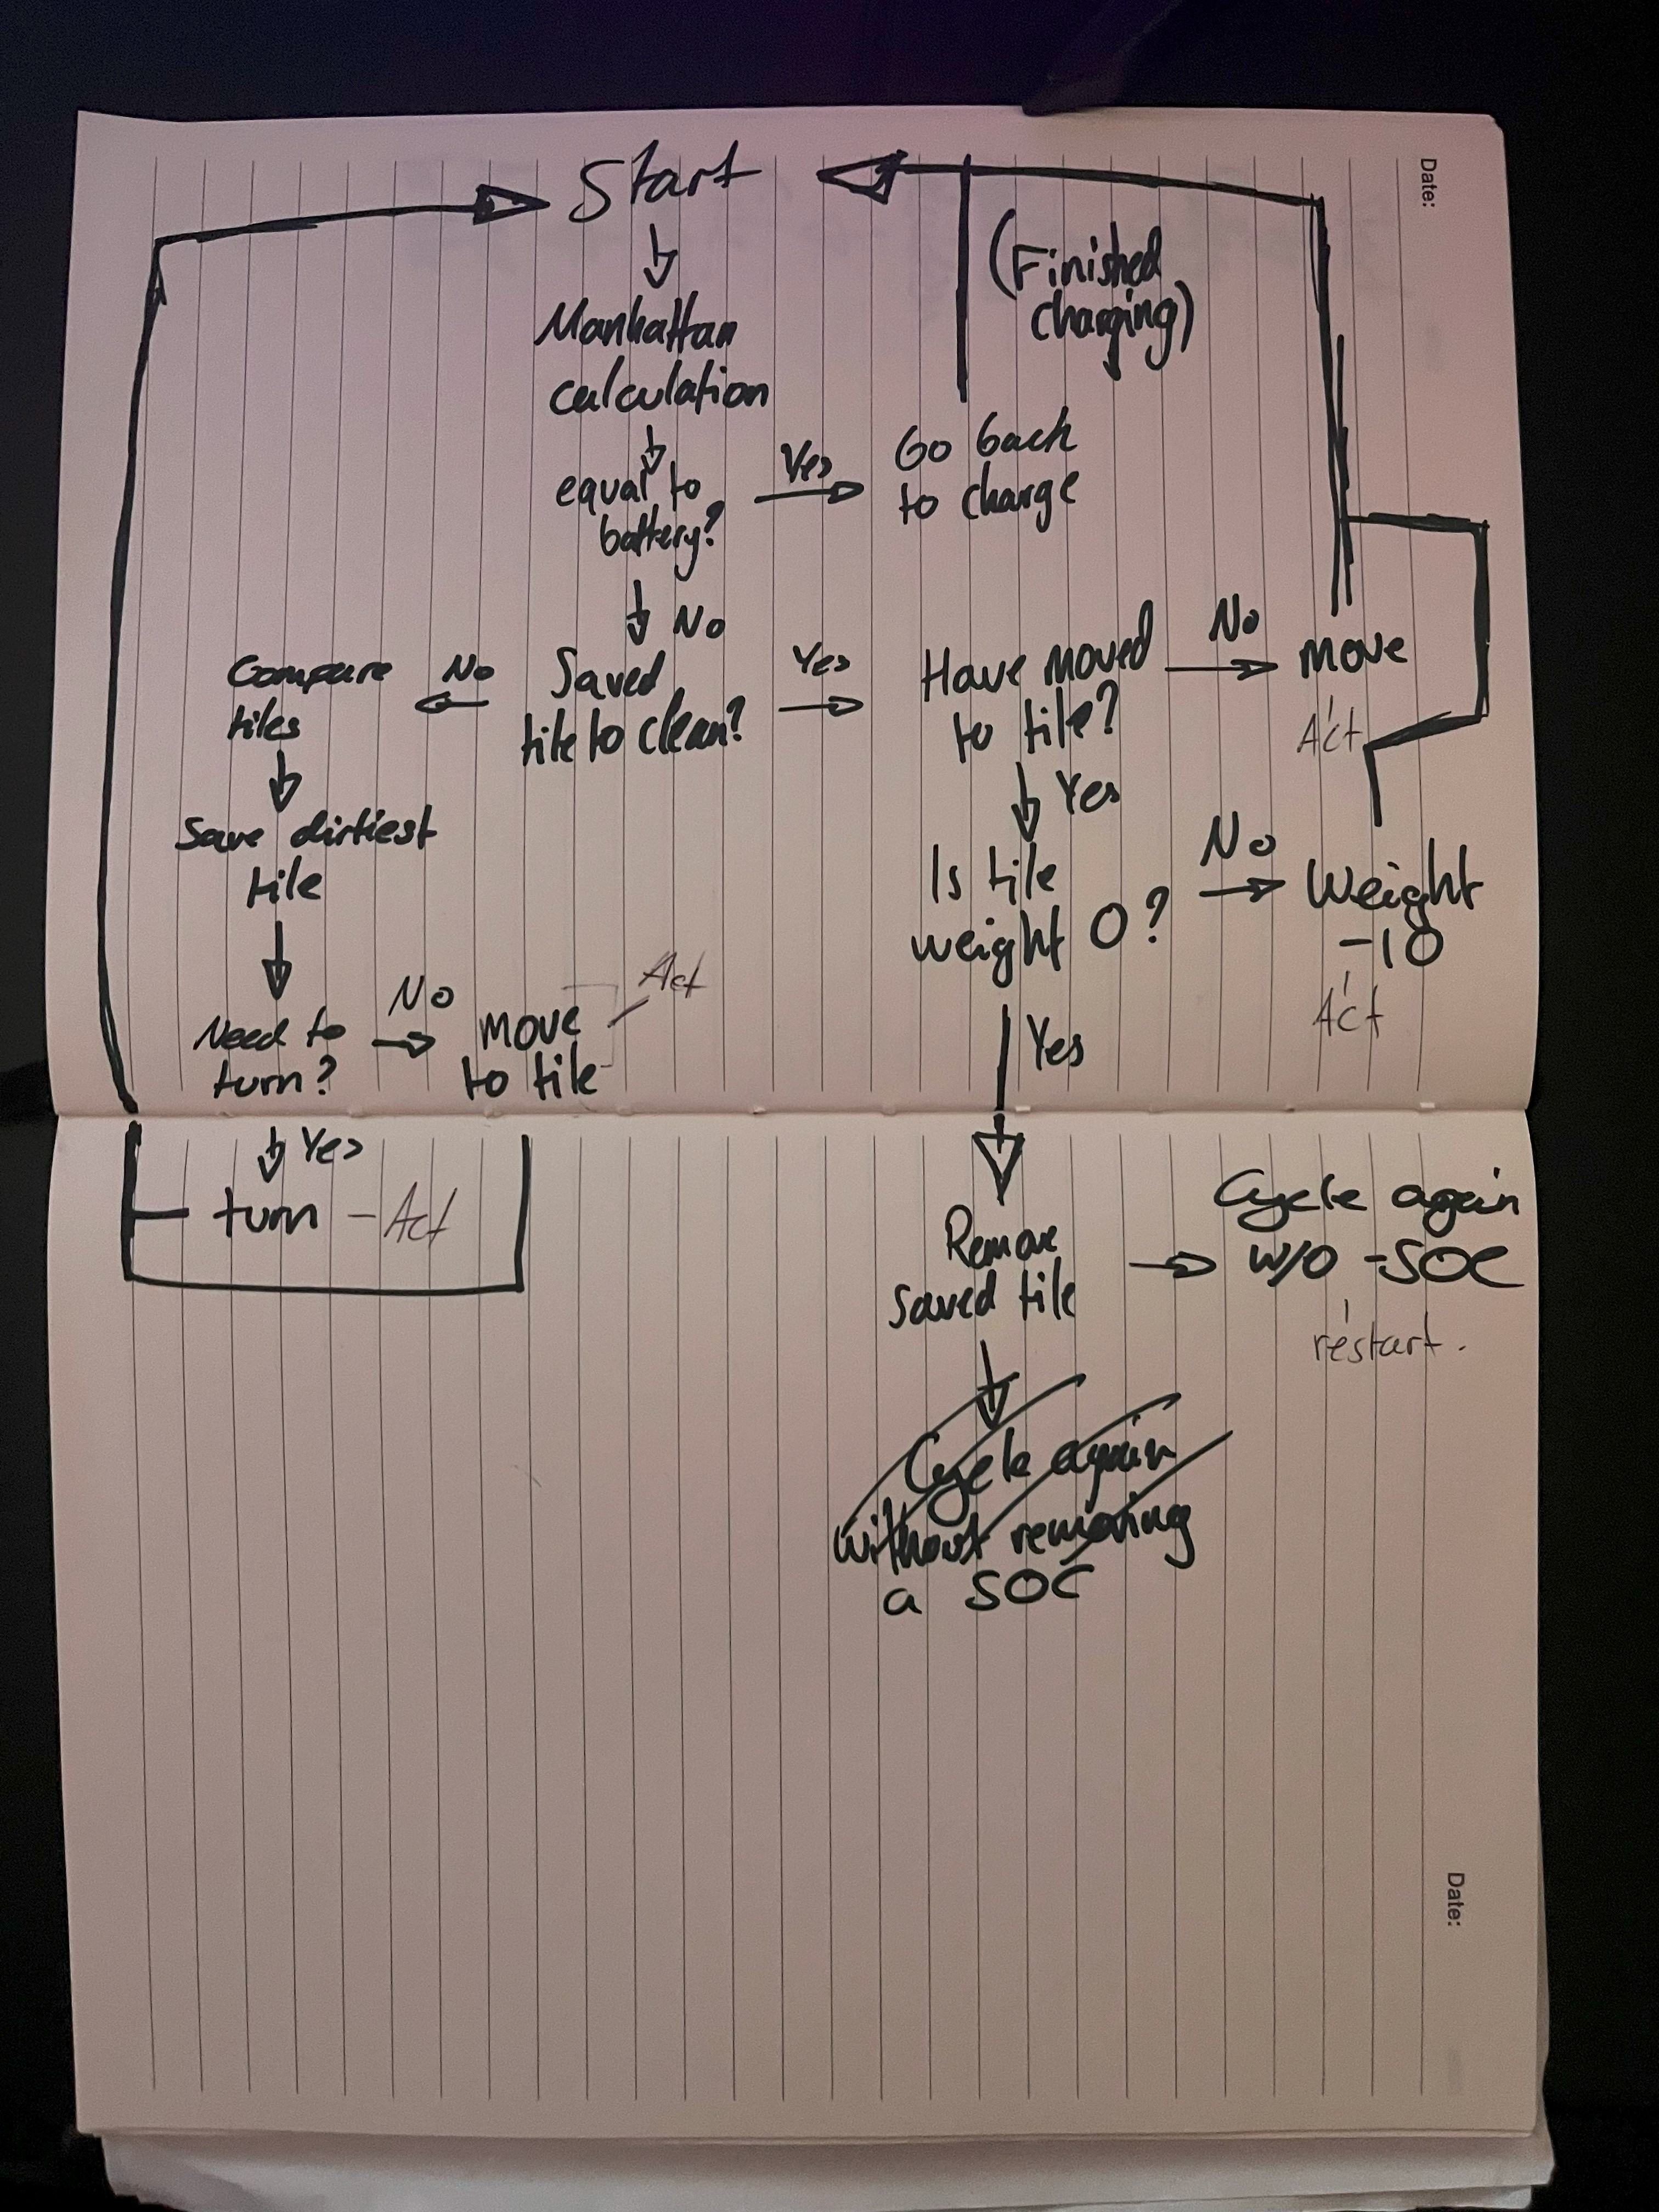 Date:
Start
(Finished
charging)
Manhattan
calculation
equal to
battery?
Yes
Go back
to charge
No
Compare
tiles
No
Saved
tile to clean?
Yes
Have moved
to tile?
No
move
Act
Yes
Save dirtiest
tile
Is tile
weight 0?
No
Weight
-10
Act
Need to
turn?
No
move
to tile
Act
Yes
Yes
turn - Act
Remove
saved tile
Cycle again
w/o -SOC
restart.
Cycle again
without removing
a SOC
Date: